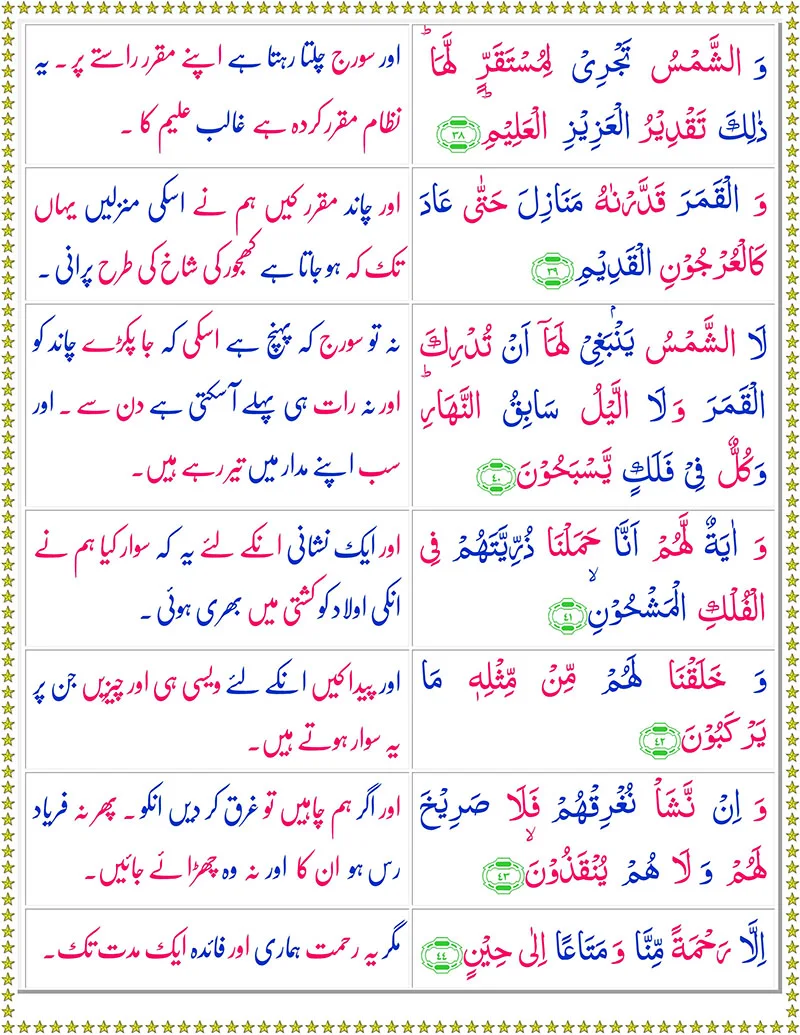 وَ الشَّمْسُ تَجْرِیْ لِمُسْتَقَرٍّ لَّهَاؕ
ذٰلِكَ تَقْدِیْرُ الْعَزِیْزِ الْعَلِیْمِؕ ۳۸
اور سورج چلتا رہتا ہے اپنے مقرر راستے پر۔ یہ
نظام مقرر کردہ ہے غالب علیم کا۔
وَ الْقَمَرَ قَدَّرْنٰهُ مَنَازِلَ حَتّٰى عَادَ
كَالْعُرْجُوْنِ الْقَدِیْمِ ۳۹
اور چاند مقرر کیں ہم نے اسکی منزلیں یہاں
تک کہ ہو جاتا ہے کھجور کی شاخ کی طرح پرانی۔
لَا الشَّمْسُ یَنْۢبَغِیْ لَهَاۤ اَنْ تُدْرِكَ
الْقَمَرَ وَلَا الَّیْلُ سَابِقُ النَّهَارِؕ
وَكُلٌّ فِیْ فَلَكٍ یَّسْبَحُوْنَ ۴۰
نہ تو سورج کہ پہنچ ہے اسکی کہ جا پکڑے چاند کو
اور نہ رات ہی پہلے آسکتی ہے دن سے۔ اور
سب اپنے مدار میں تیر رہے ہیں۔
وَ اٰیَةٌ لَّهُمْ اَنَّا حَمَلْنَا ذُرِّیَّتَهُمْ فِی
الْفُلْكِ الْمَشْحُوْنِۙ ۴۱
اور ایک نشانی انکے لئے یہ کہ سوار کیا ہم نے
انکی اولاد کو کشتی میں بھری ہوئی۔
وَ خَلَقْنَا لَهُمْ مِّنْ مِّثْلِهٖ مَا
یَرْكَبُوْنَ ۴۲
اور پیدا کیں انکے لئے ویسی ہی اور چیزیں جن پر
یہ سوار ہوتے ہیں۔
وَ اِنْ نَّشَاْ نُغْرِقْهُمْ فَلَا صَرِیْخَ
لَهُمْ وَ لَا هُمْ یُنْقَذُوْنَۙ ۴۳
اور اگر ہم چاہیں تو غرق کر دیں انکو۔ پھر نہ فریاد
رس ہو ان کا اور نہ وہ چھڑائے جائیں۔
اِلَّا رَحْمَةً مِّنَّا وَ مَتَاعًا اِلٰى حِیْنٍ ۴۴
مگر یہ رحمت ہماری اور فائدہ ایک مدت تک۔